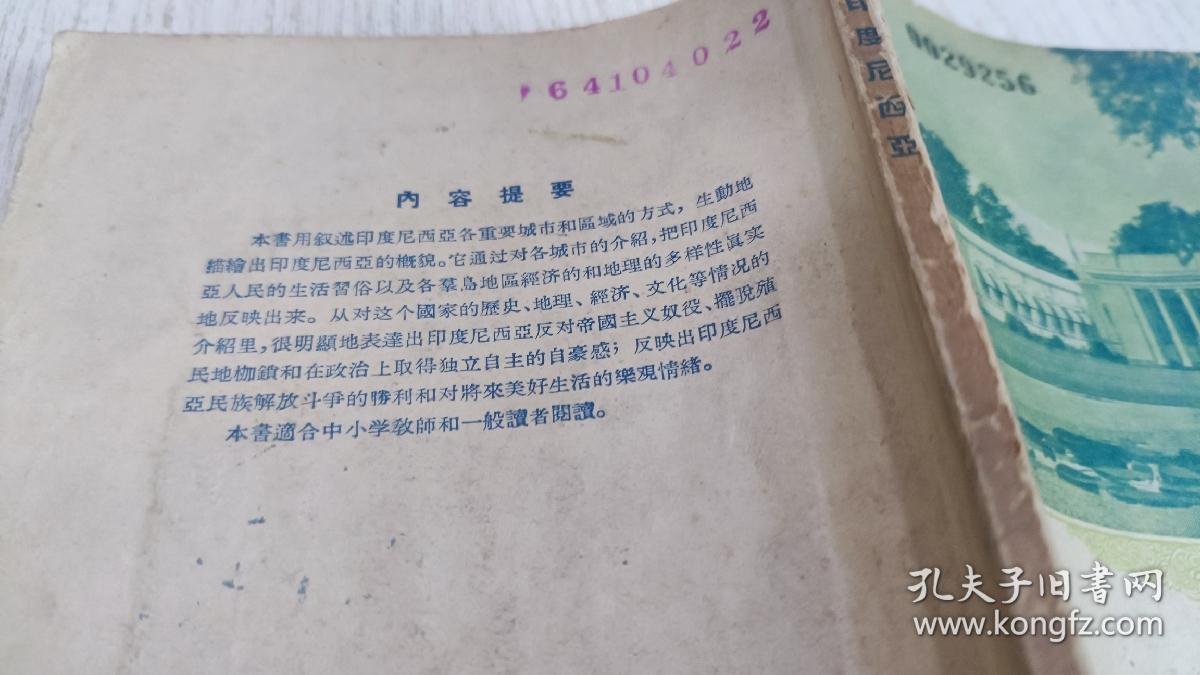 64104022
內容提要
本書用叙述印度尼西亞各重要城市和區域的方式，生動地
描繪出印度尼西亞的概貌。它通过对各城市的介紹，把印度尼西
亞人民的生活習俗以及各羣島地區經济的和地理的多样性眞实
地反映出来。从对这个國家的歷史、地理、經济、文化等情况的
介紹里，很明顯地表達出印度尼西亞反对帝國主义奴役、擺脫殖
民地枷鎖和在政治上取得独立自主的自豪感；反映出印度尼西
亞民族解放斗爭的勝利和对將來美好生活的樂观情緒。
本書適合中小学敎師和一般讀者閱讀。
印度尼西亞
0029256
孔夫子旧书网
www.kongfz.com